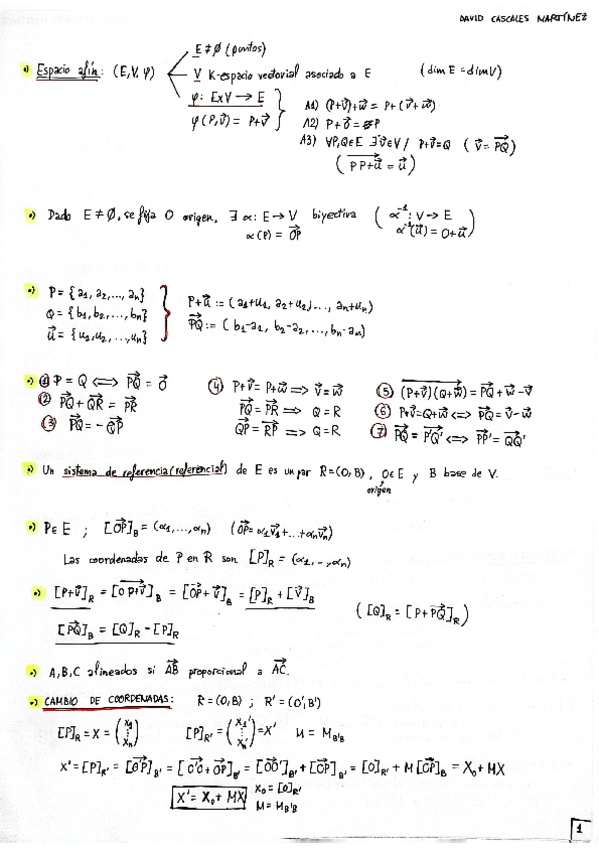 DAVID CASCALES MARTÍNEZ
•) Espacio afín: (E, V, φ)
E ≠ ∅ (puntos)
V K-espacio vectorial asociado a E (dim E = dim V)
φ: E x V → E
φ(P, v⃗) = P+v⃗
A1) (P+v⃗)+w⃗ = P+(v⃗+w⃗)
A2) P+0⃗ = P
A3) ∀P,Q∈E ∃ v⃗∈V / P+v⃗=Q (v⃗ = PQ⃗)
(PP+u⃗ = u⃗)
•) Dado E ≠ ∅, se fija O origen, ∃ α: E → V biyectiva (α⁻¹: V → E
α(P) = OP⃗ α⁻¹(u⃗) = O+u⃗)
•) P = {a₁, a₂, ..., aₙ}
Q = {b₁, b₂, ..., bₙ}
u⃗ = {u₁, u₂, ..., uₙ}
P+u⃗ := (a₁+u₁, a₂+u₂, ..., aₙ+uₙ)
PQ⃗ := (b₁-a₁, b₂-a₂, ..., bₙ-aₙ)
•) (1) P = Q <=> PQ⃗ = 0⃗ (4) P+v⃗ = P+w⃗ => v⃗ = w⃗ (5) (P+v⃗)(Q+w⃗) = PQ⃗ + w⃗ - v⃗
(2) PQ⃗ + QR⃗ = PR⃗ PQ⃗ = PR⃗ => Q = R (6) P+v⃗ = Q+w⃗ <=> PQ⃗ = v⃗ - w⃗
(3) PQ⃗ = -QP⃗ QP⃗ = RP⃗ => Q = R (7) PQ⃗ = P'Q'⃗ <=> PP'⃗ = QQ'⃗
•) Un sistema de referencia (referencial) de E es un par R = (O, B), O∈E y B base de V.
origen
•) P∈E ; [OP⃗]_B = (α₁, ..., αₙ) (OP⃗ = α₁v⃗₁ + ... + αₙv⃗ₙ)
Las coordenadas de P en R son [P]_R = (α₁, .., αₙ)
•) [P+v⃗]_R = [OP+v⃗]_B = [OP⃗ + v⃗]_B = [P]_R + [v⃗]_B
([Q]_R = [P + PQ⃗]_R)
[PQ⃗]_B = [Q]_R - [P]_R
•) A, B, C alineados si AB⃗ proporcional a AC⃗.
•) CAMBIO DE COORDENADAS: R = (O, B) ; R' = (O', B')
[P]_R = X = (x₁ ⋮ xₙ) [P]_R' = (x₁' ⋮ xₙ') = X' M = M_B'B
X' = [P]_R' = [O'P⃗]_B' = [O'O⃗ + OP⃗]_B' = [OO'⃗]_B' + [OP⃗]_B' = [O]_R' + M[OP⃗]_B = X₀ + MX
X' = X₀ + MX
X₀ = [O]_R'
M = M_B'B
1